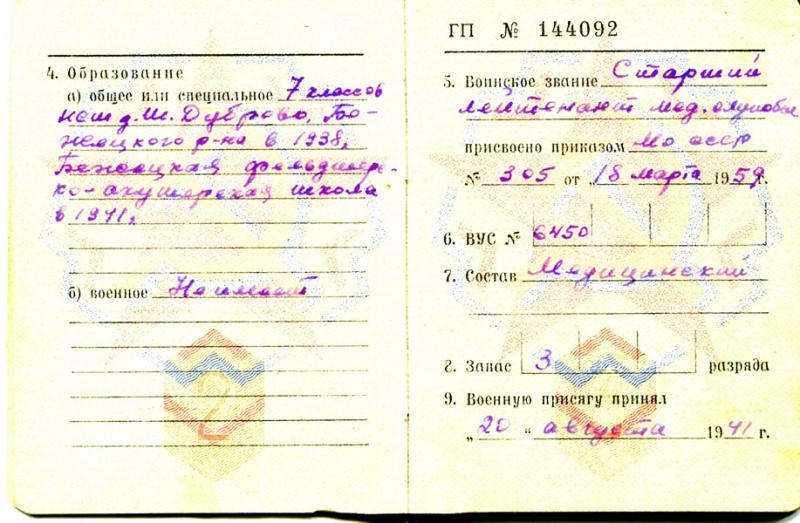 4. Образование
а) общее или специальное 7 классов
НСШ д. Дуброво, Бе-
жецкого р-на в 1938г
Бежецкая фельдшерс-
ко-акушерская школа
в 1941г.
б) военное Не имеет
2
ГП № 144092
5. Воинское звание Старший
лейтенант мед. службы
присвоено приказом МО СССР
№ 305 от „18 марта 1959г.
6. ВУС № 6450
7. Состав Медицинский
8. Запас 3 разряда
9. Военную присягу принял
„20" августа 1941 г.